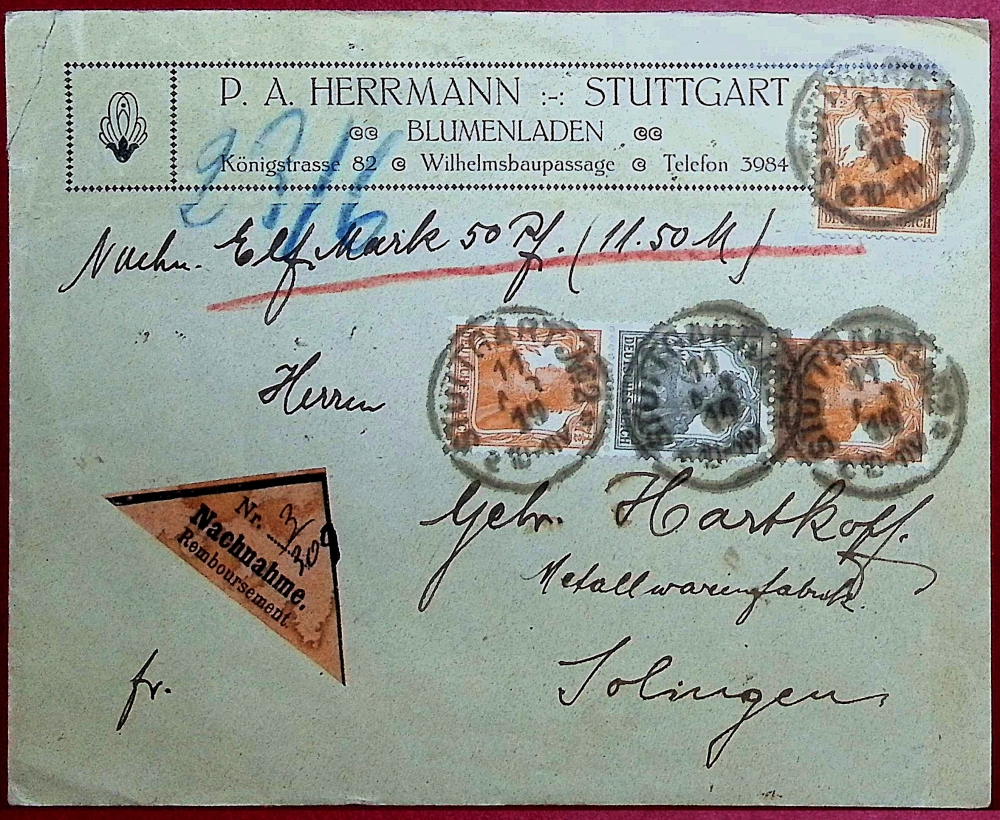 P. A. HERRMANN :-: STUTTGART
BLUMENLADEN
Königstrasse 82 Wilhelmsbaupassage Telefon 3984
Nachn. Elf Mark 50 Pf. (11.50 M)
DEUTSCHES REICH
Herren
STUTTGART
11
10-11V
Gebr. Hartkopf.
Metallwarenfabrik
Solingen.
Nr. 3
Nachnahme.
Remboursement.
fr.